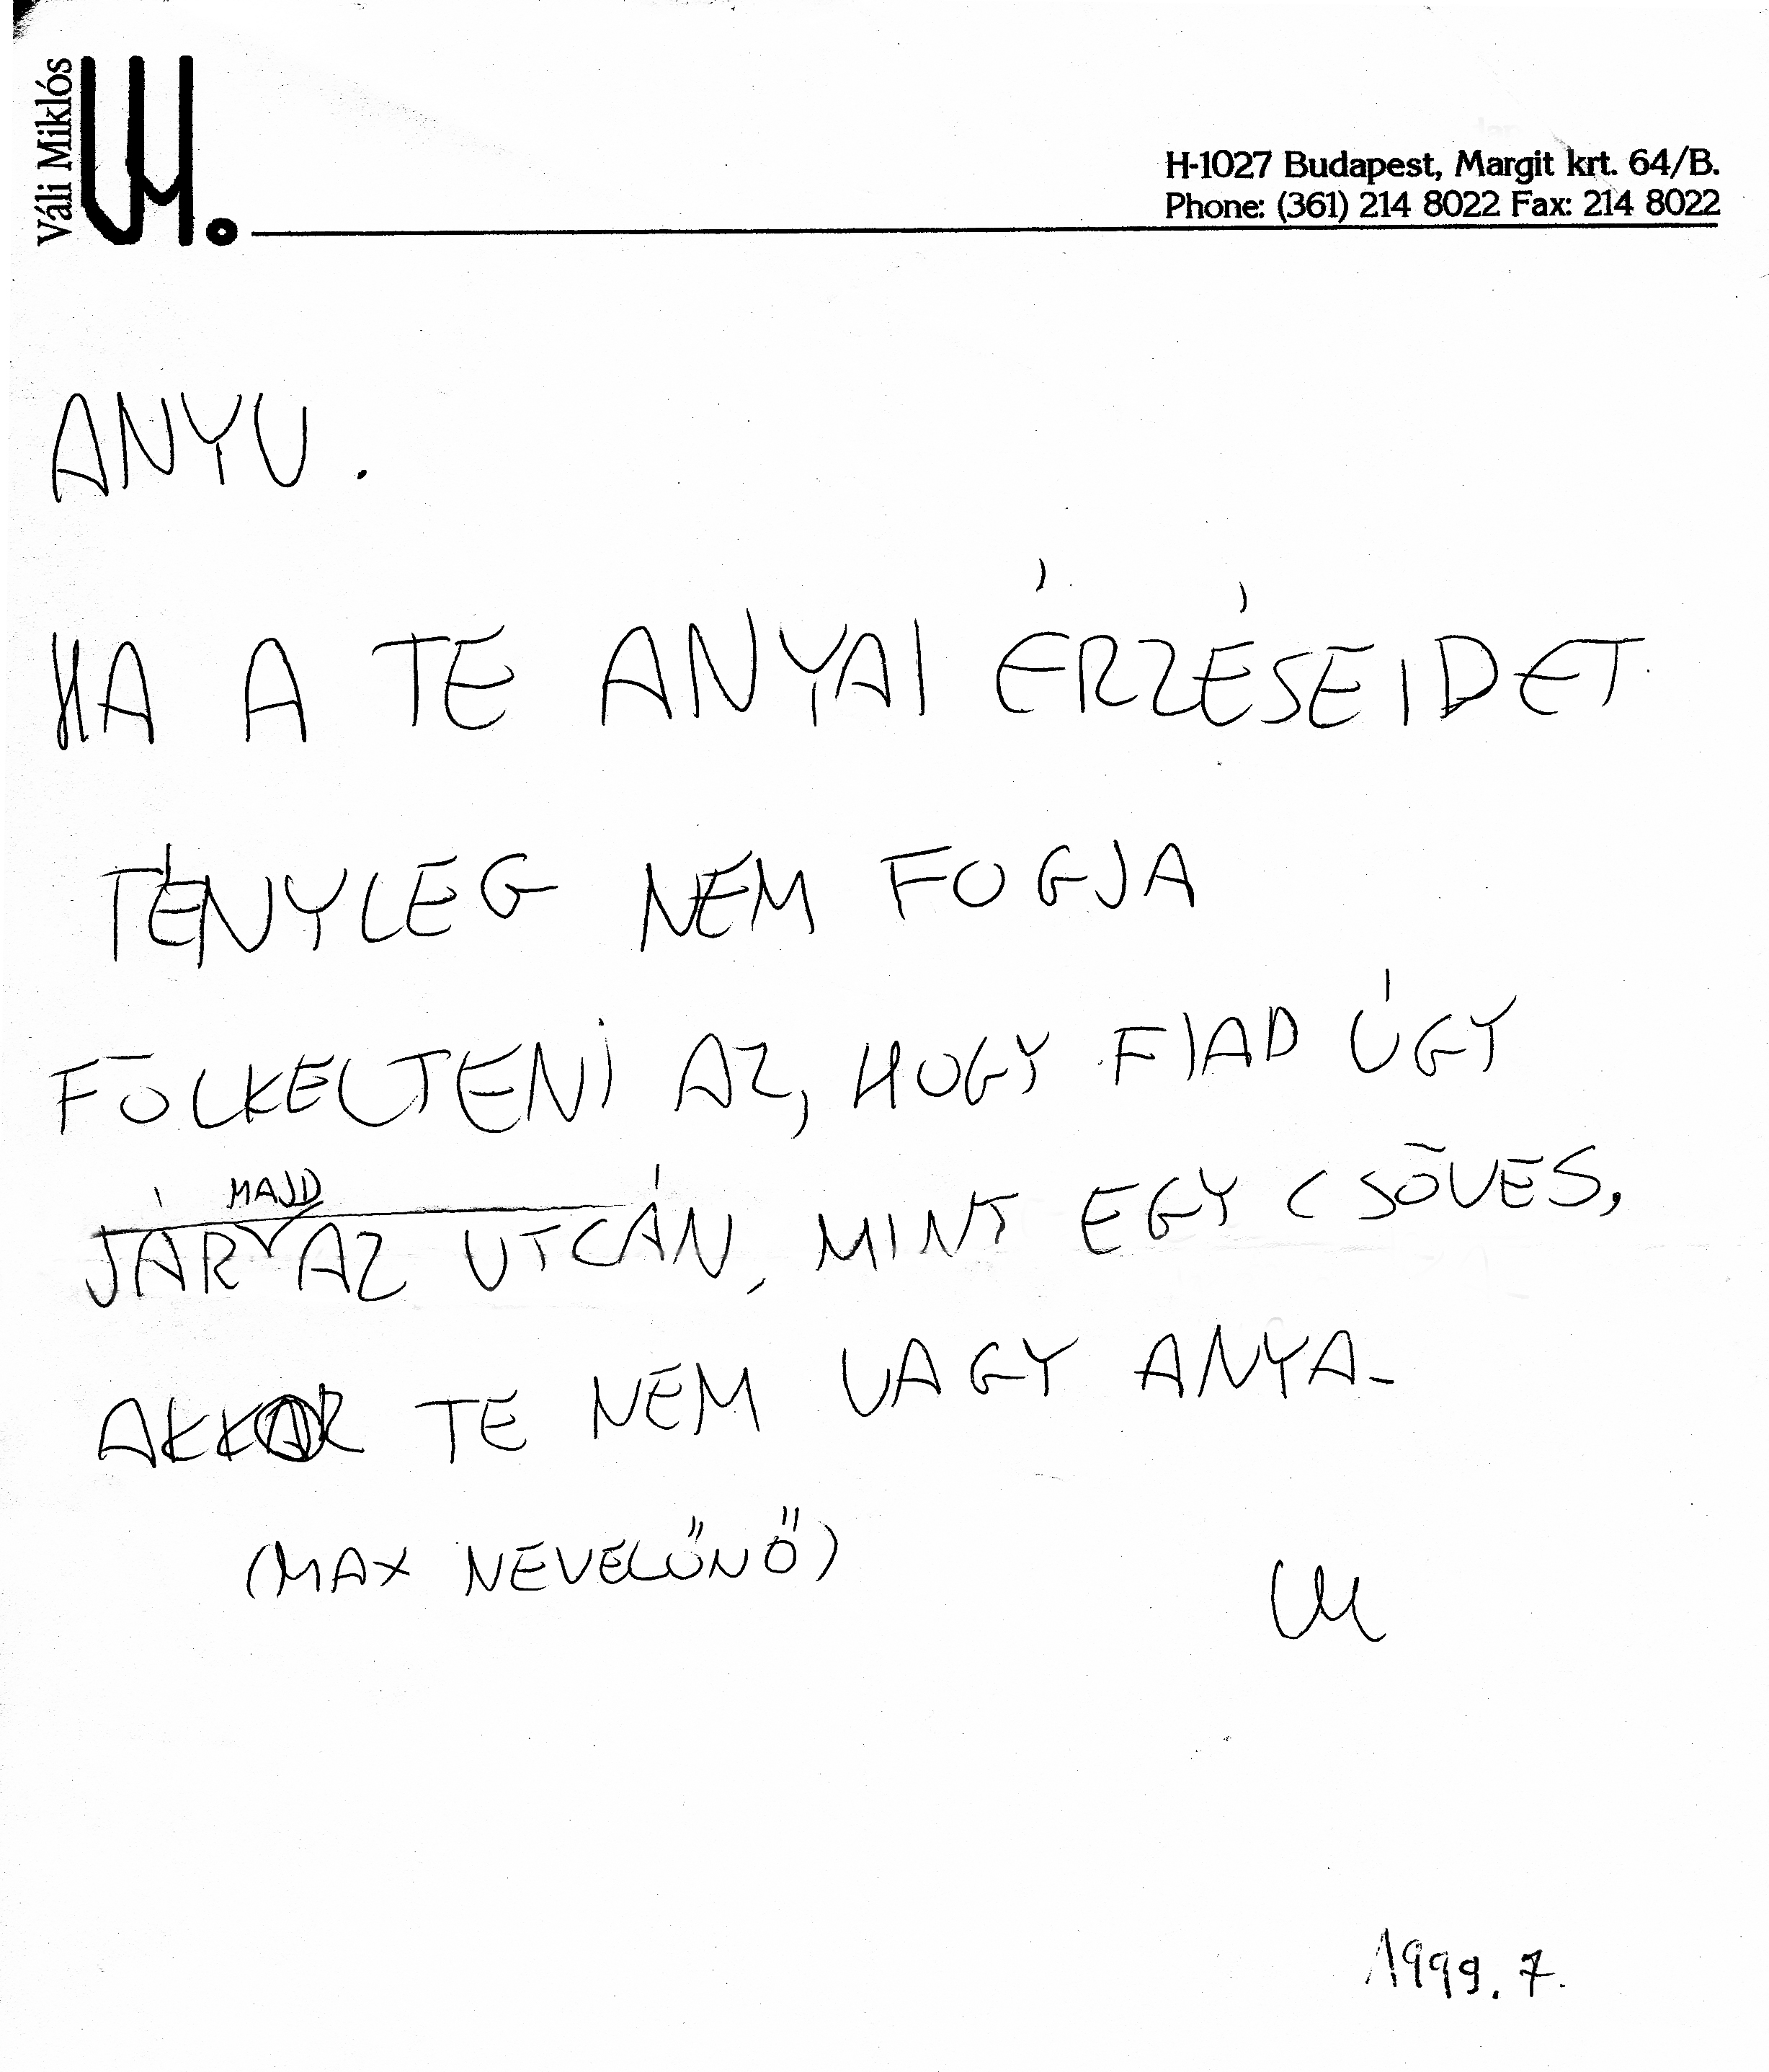 Váli Miklós
VM.
H-1027 Budapest, Margit krt. 64/B.
Phone: (361) 214 8022 Fax: 214 8022
ANYU.
HA A TE ANYAI ÉRZÉSEIDET
TÉNYLEG NEM FOGJA
FÖLKELTENI AZ, HOGY FIAD ÚGY
MAJD
JÁR AZ UTCÁN, MINT EGY CSÖVES,
AKKOR TE NEM VAGY ANYA-
(MAX NEVELŐNŐ)
VM
1999. 7.